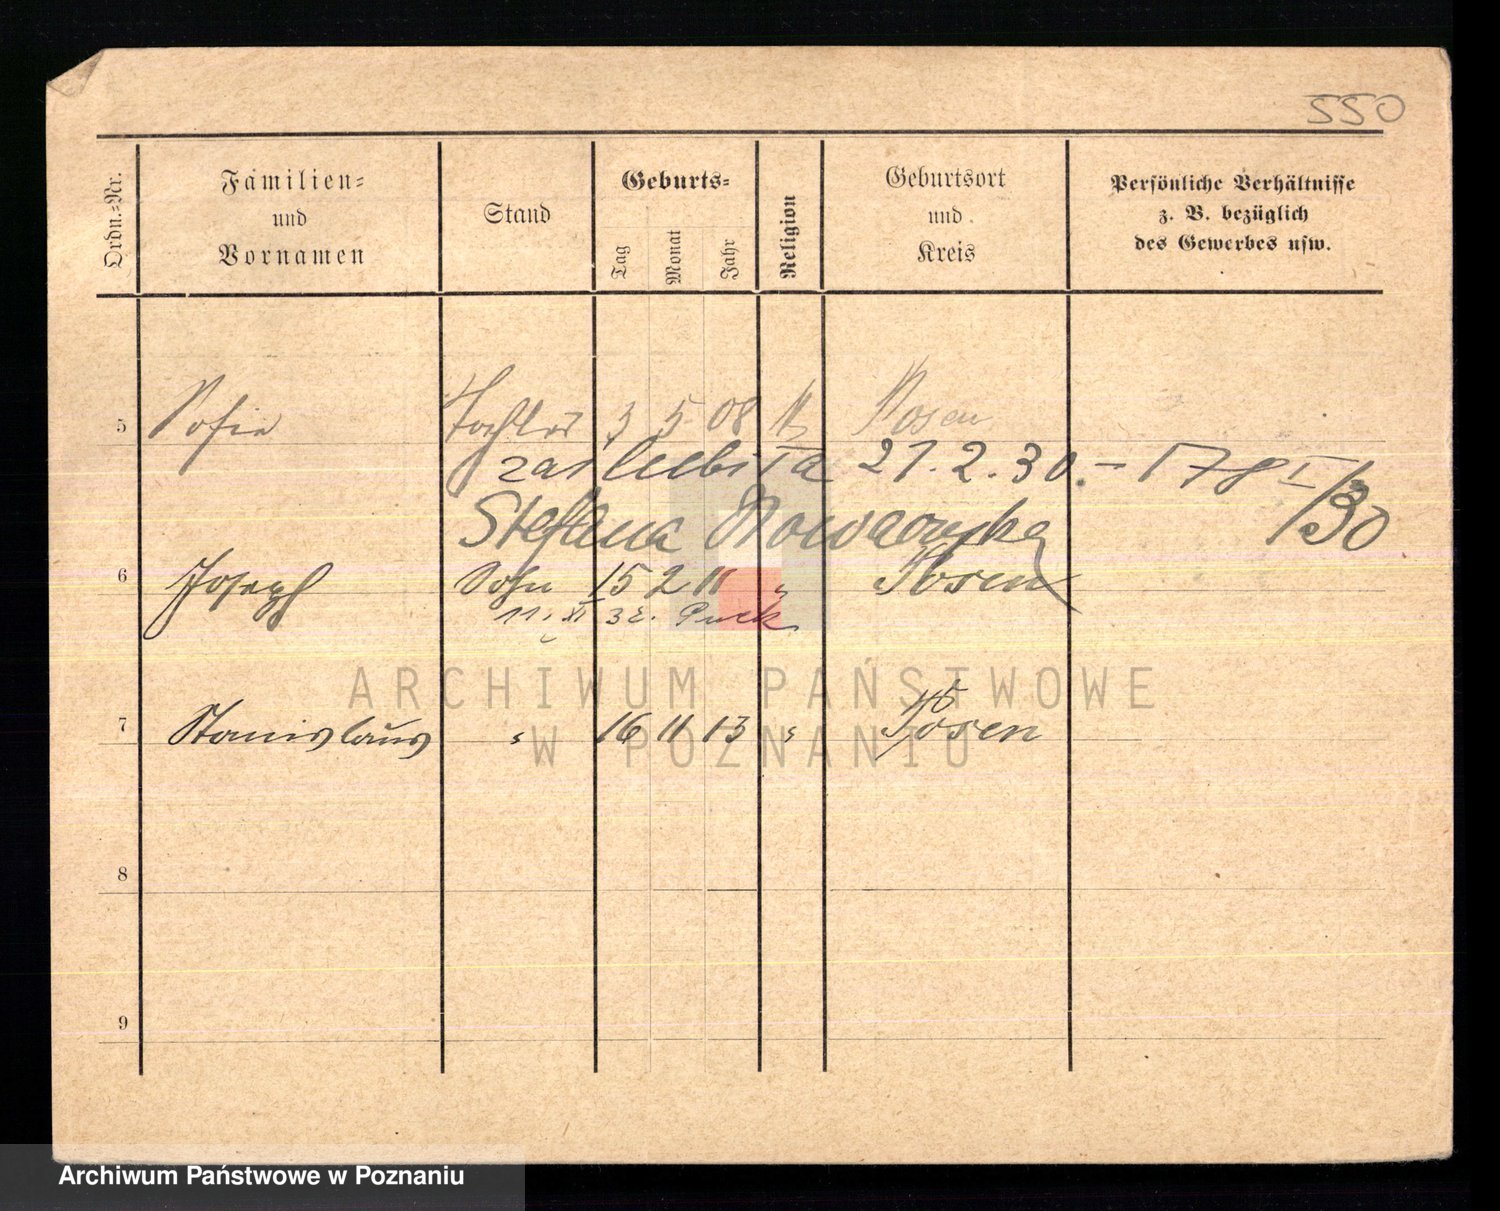 550
Ordn.-Nr.
Familien-
und
Vornamen
Stand
Geburts-
Tag
Monat
Jahr
Religion
Geburtsort
und
Kreis
Persönliche Verhältnisse
z. B. bezüglich
des Gewerbes usw.
5 Sofie Tochter 3 5 08 Posen
zaślubiła 21.2.30. – 178 I/30
Stefana
6 Joseph Sohn 15 2 11 " Posen
11. XI 32. Puck
7 Stanislaus " 16 11 13 " Posen
8
9
ARCHIWUM PAŃSTWOWE
W POZNANIU
Archiwum Państwowe w Poznaniu